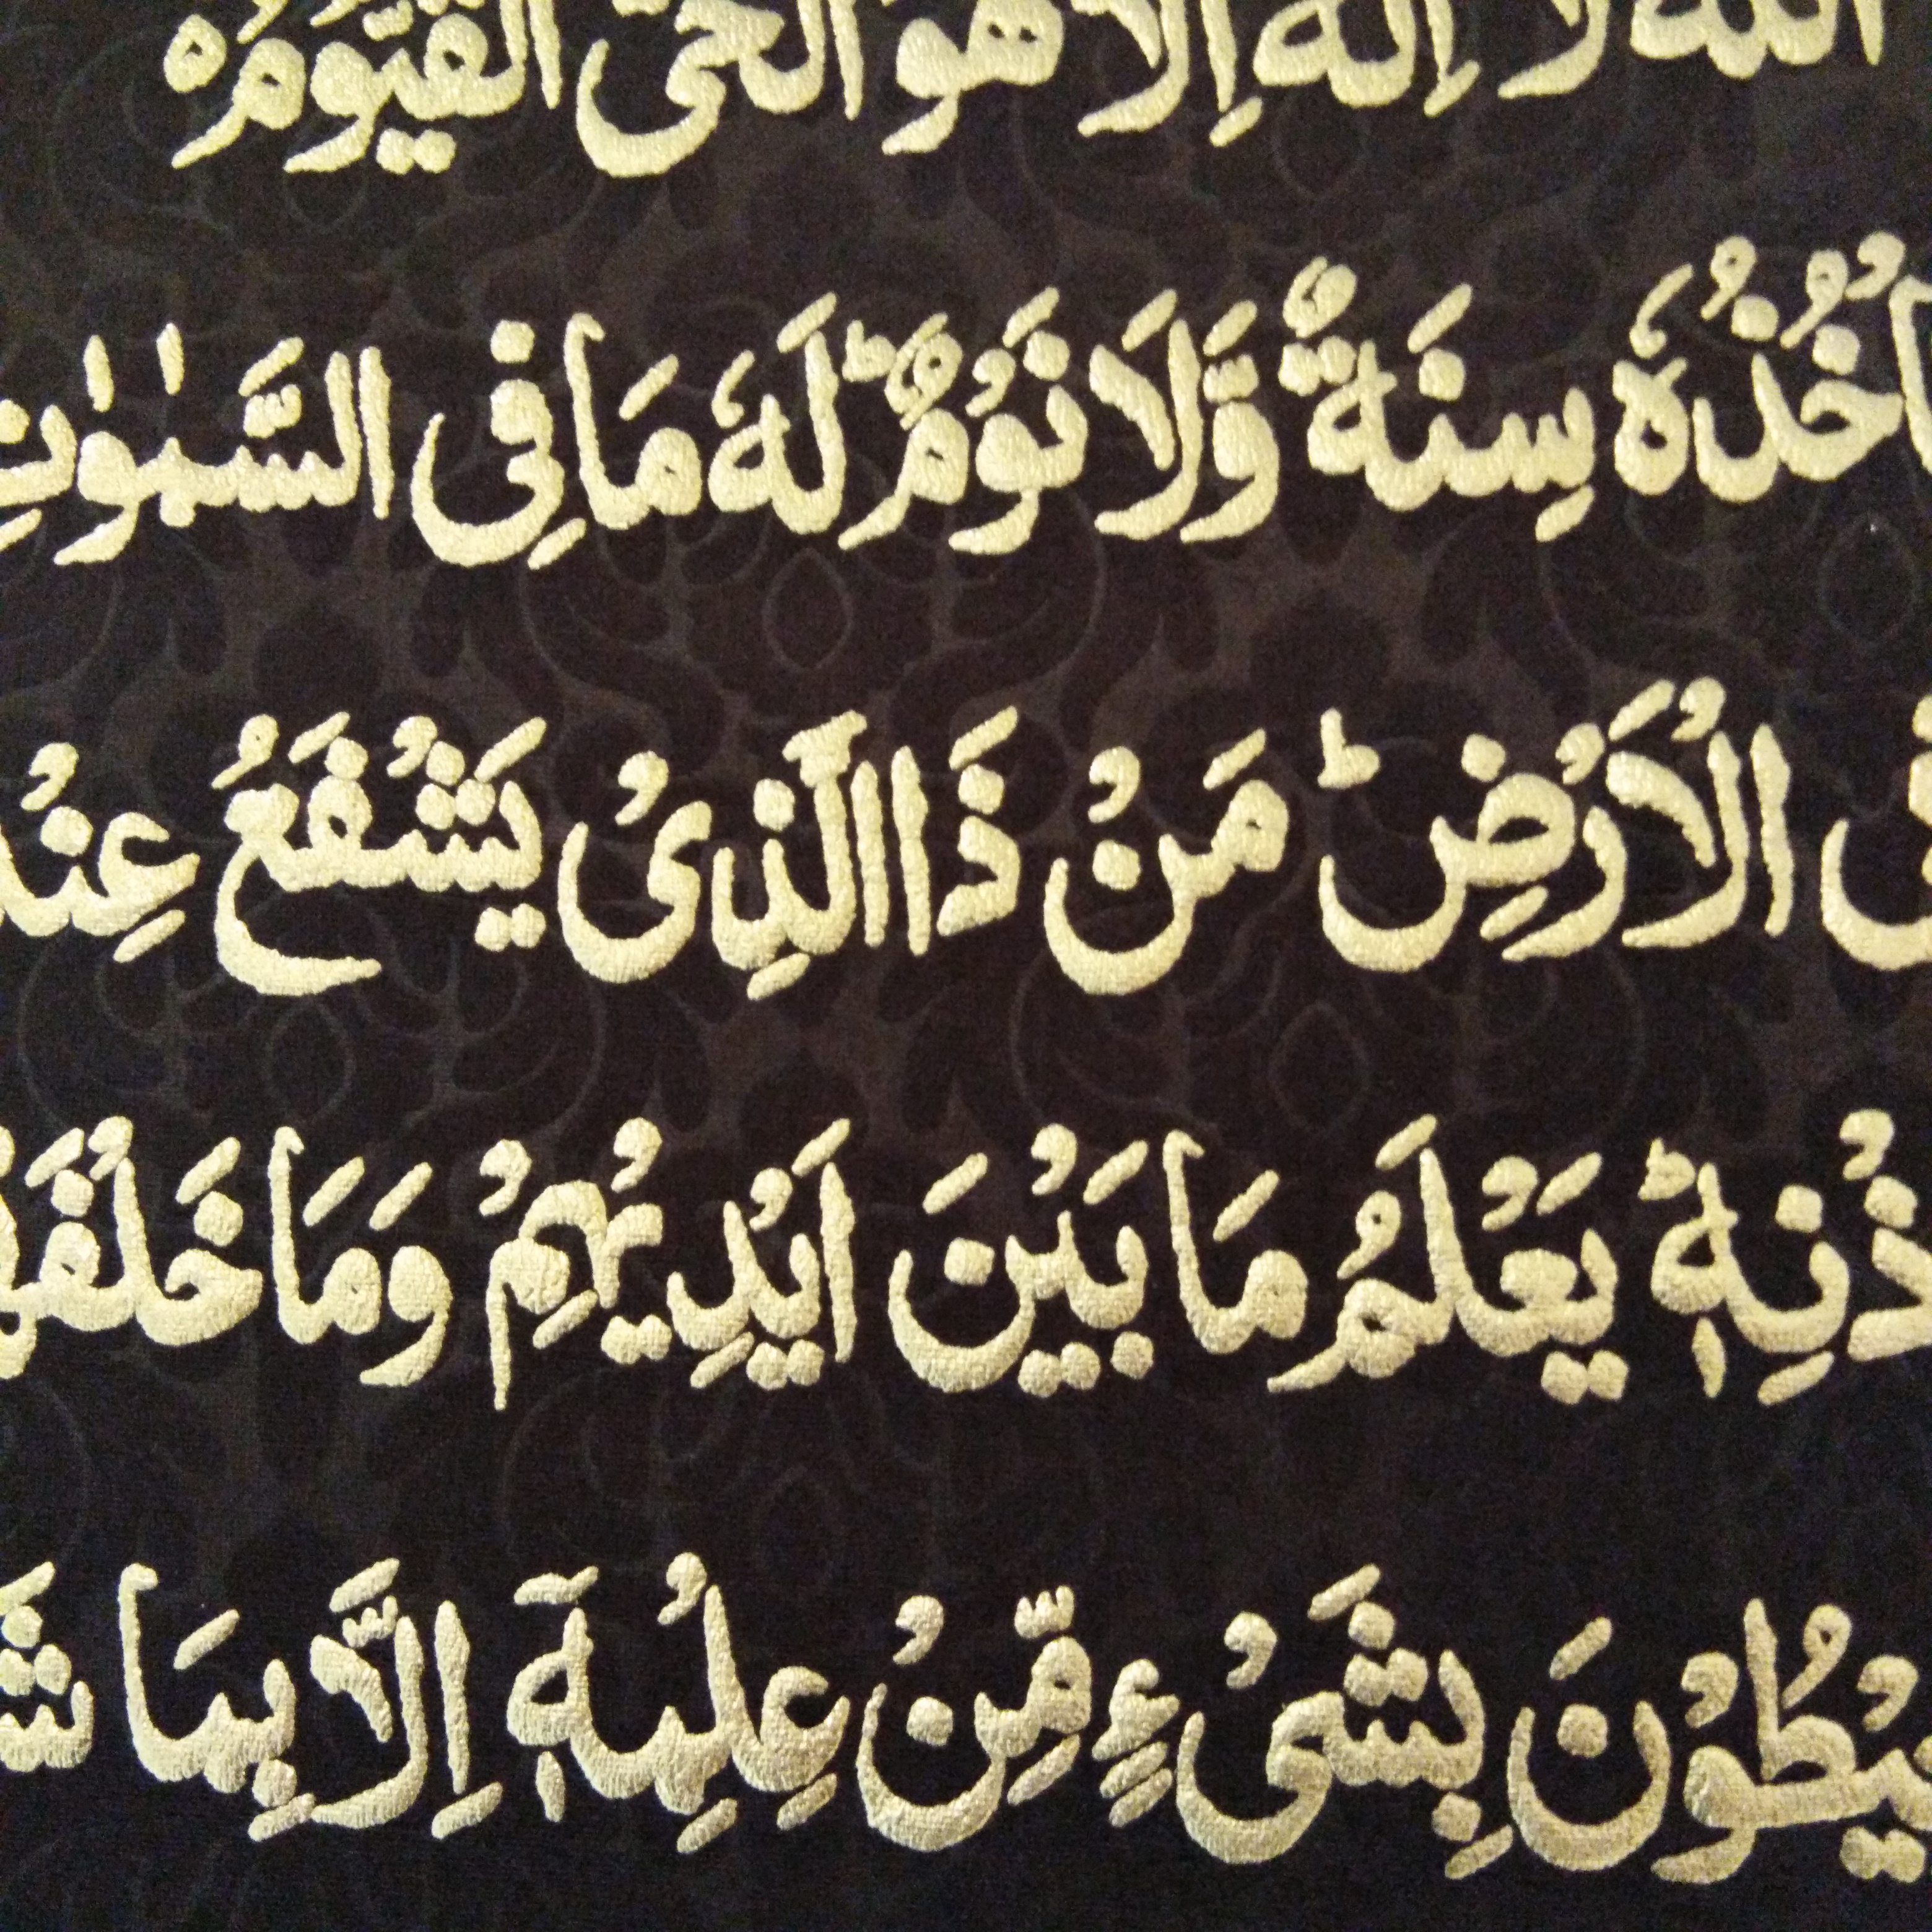 الله لا اله الا هو الحي القيوم
تَاْخُذُهٗ سِنَةٌ وَّلَا نَوْمٌ ؕ لَهٗ مَا فِى السَّمٰوٰتِ
الْاَرْضِ ؕ مَنْ ذَا الَّذِىْ يَشْفَعُ عِنْدَ
بِاِذْنِهٖ ؕ يَعْلَمُ مَا بَيْنَ اَيْدِيْهِمْ وَمَا خَلْفَهُمْ
يُحِيْطُوْنَ بِشَىْءٍ مِّنْ عِلْمِهٖٓ اِلَّا بِمَا